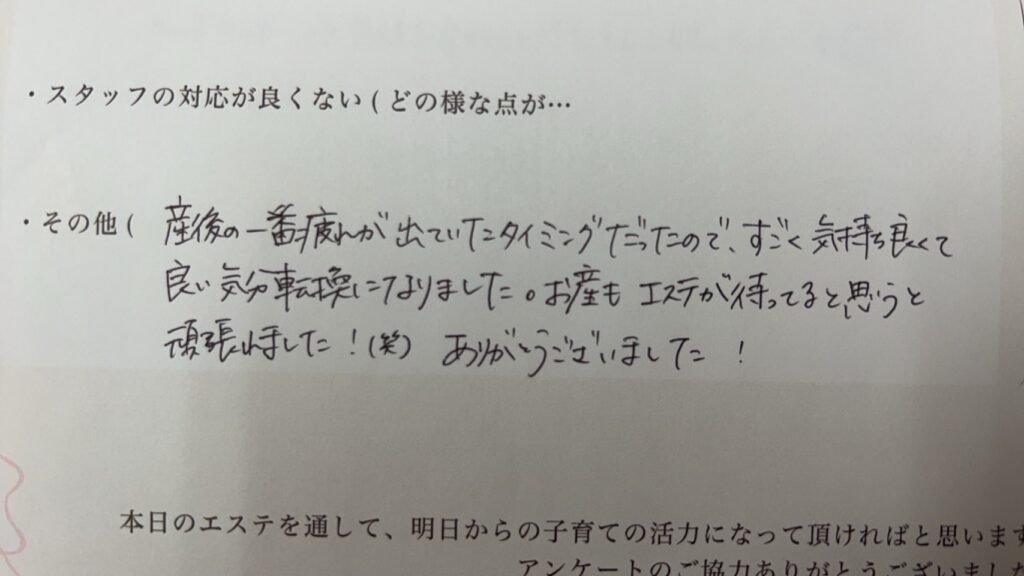 ・スタッフの対応が良くない(どの様な点が…
・その他( 産後の一番疲れが出ていたタイミングだったので、すごく気持ち良くて
良い気分転換になりました。お産も エステが待ってると思うと
頑張れました!(笑) ありがとうございました !
本日のエステを通して、明日からの子育ての活力になって頂ければと思います
アンケートのご協力ありがとうございました